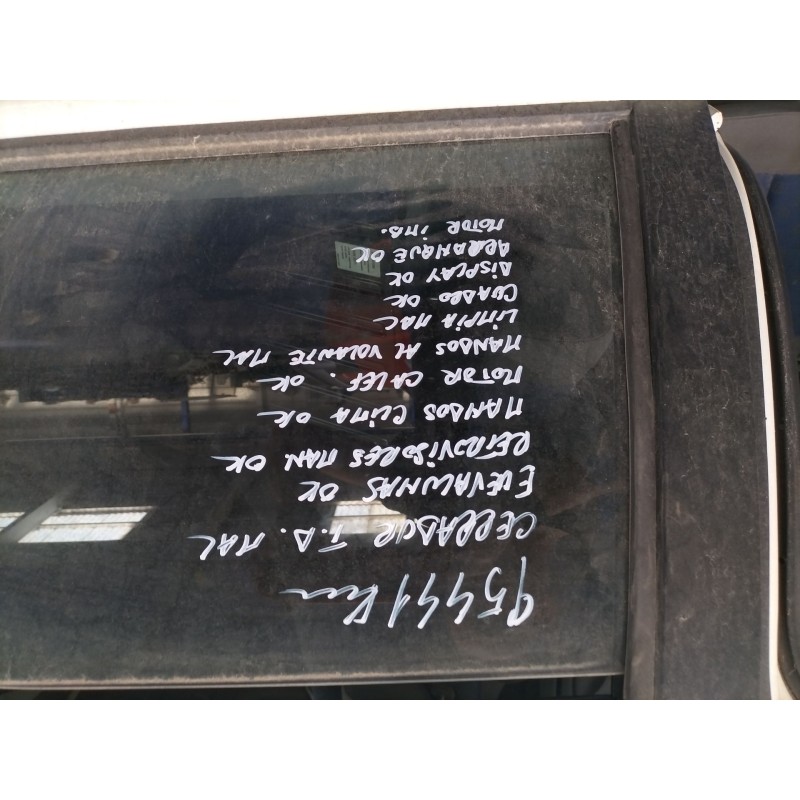 95441 Km
CERRADUR T.D. MAL
ELEVALUNAS OK
RETROVISORES MAN. OK
MANDOS CLIMA OK
MOTOR CALEF. OK
MANDOS AL VOLANTE MAL
LIMPIA MAL
CUADRO OK
DISPLAY OK
ARRANQUE OK
MOTOR INB.